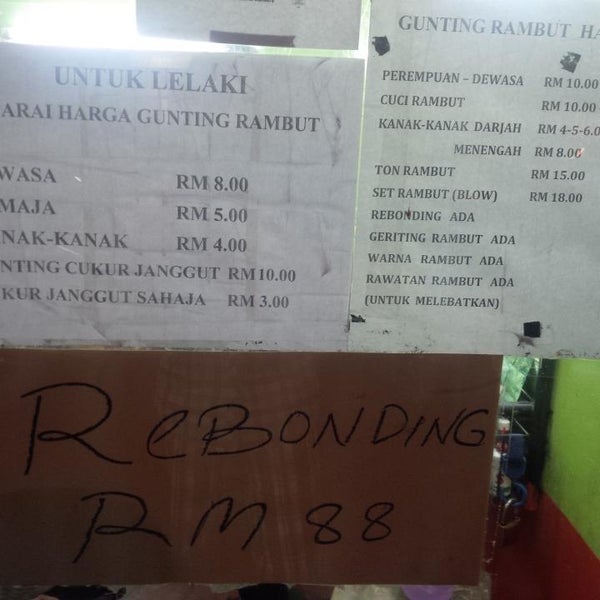 UNTUK LELAKI
ARAI HARGA GUNTING RAMBUT
WASA RM 8.00
MAJA RM 5.00
NAK-KANAK RM 4.00
NTING CUKUR JANGGUT RM 10.00
KUR JANGGUT SAHAJA RM 3.00
GUNTING RAMBUT HA
PEREMPUAN – DEWASA RM 10.00
CUCI RAMBUT RM 10.00
KANAK-KANAK DARJAH RM 4-5-6.0
MENENGAH RM 8.00
TON RAMBUT RM 15.00
SET RAMBUT (BLOW) RM 18.00
REBONDING ADA
GERITING RAMBUT ADA
WARNA RAMBUT ADA
RAWATAN RAMBUT ADA
(UNTUK MELEBATKAN)
ReBONDING
RM 88